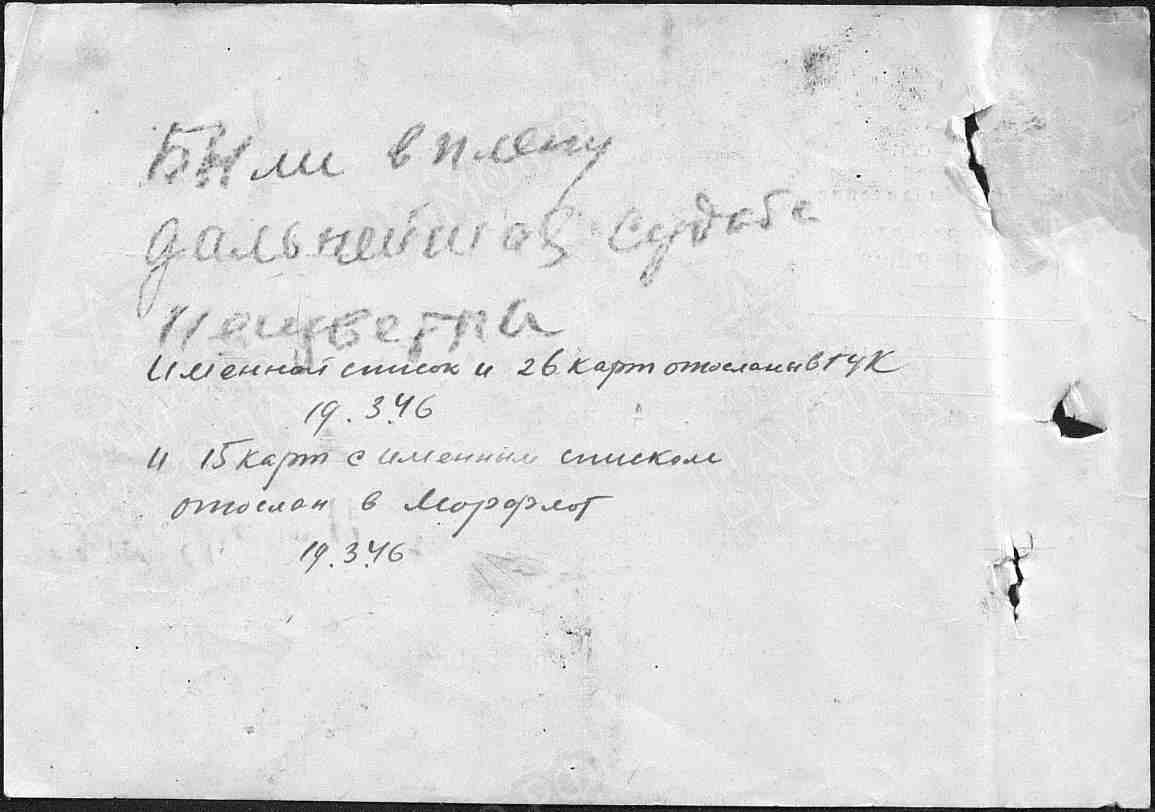 Были в плену
дальнейшая судьба
неизвестна
Именной список и 26 карт отосланы в ГУК
19.3.46
и 15 карт с именным списком
отослан в Морфлот
19.3.46